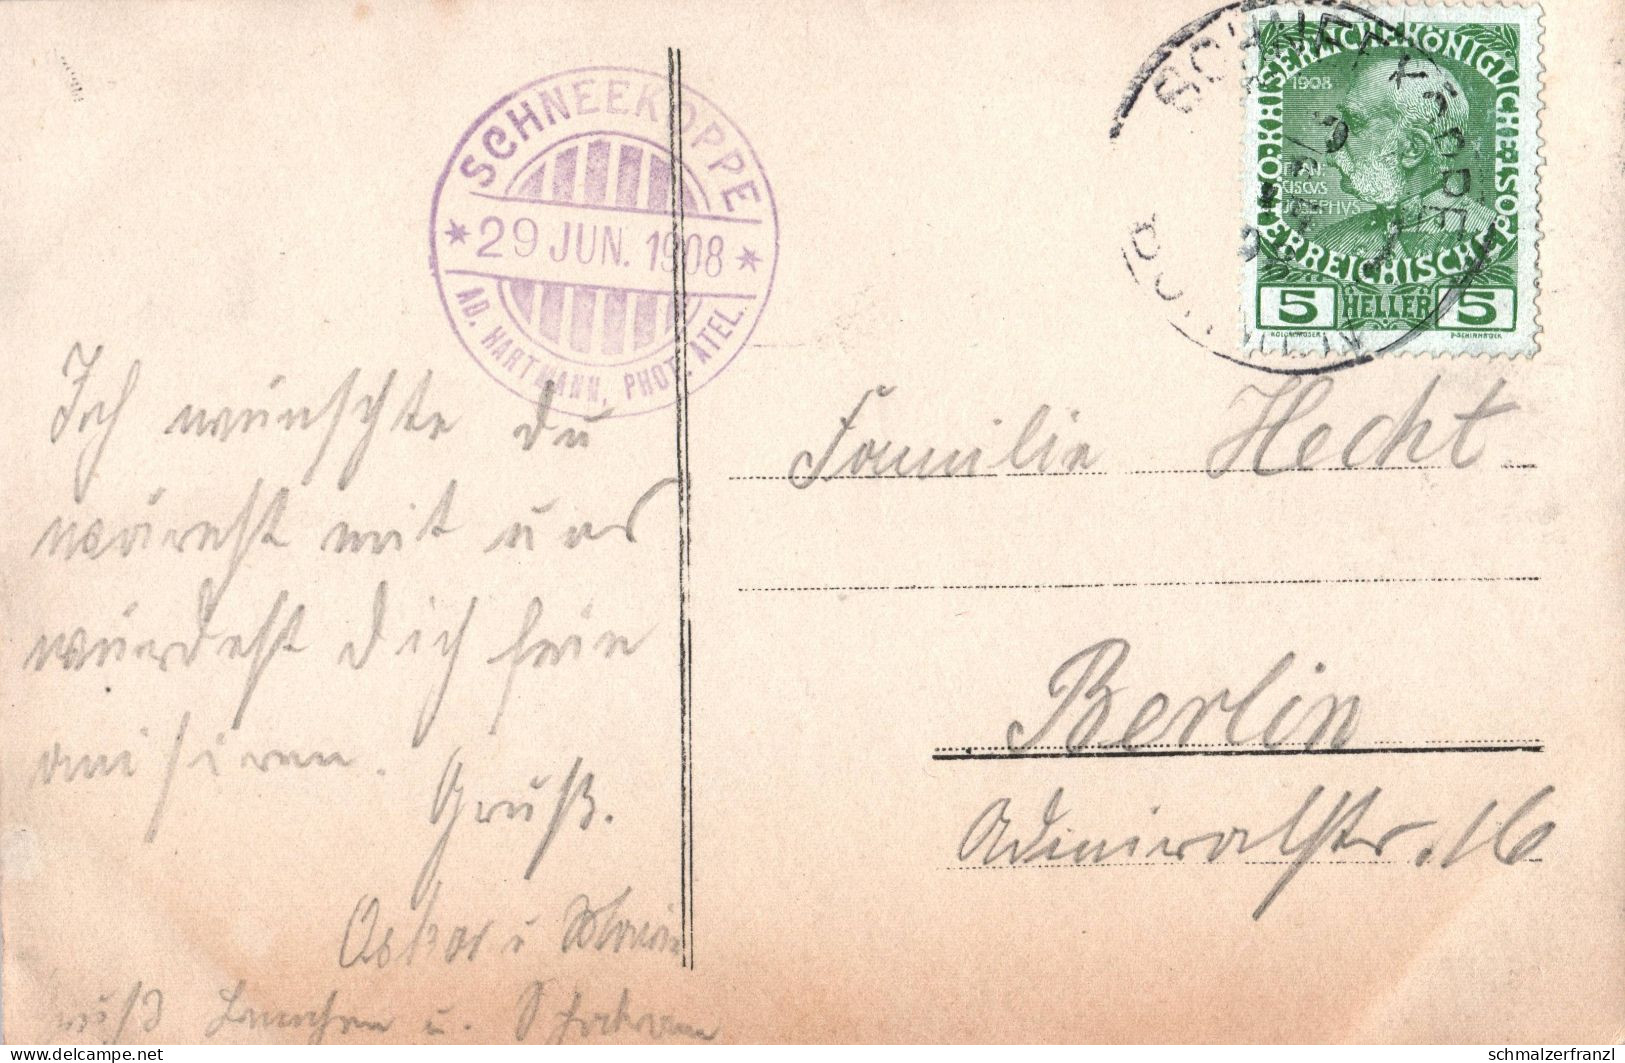 SCHNEEKOPPE
* 29 JUN. 1908 *
AD. HARTMANN, PHOT. ATEL.
SCHNEEKOPPE
KAISERLICHE KÖNIGLICHE
ÖSTERREICHISCHE POST
1908
FRAN
CISCVS
JOSEPHVS
5 HELLER 5
KOLO MOSER
F. SCHIRNBÖCK
Ich wünschte du
wärest mit uns
würdest dich fein
amisiren.
Gruß.
Oskar u
Familie Hecht
Berlin
Admiralstr. 16
delcampe.net
schmalzerfranzl